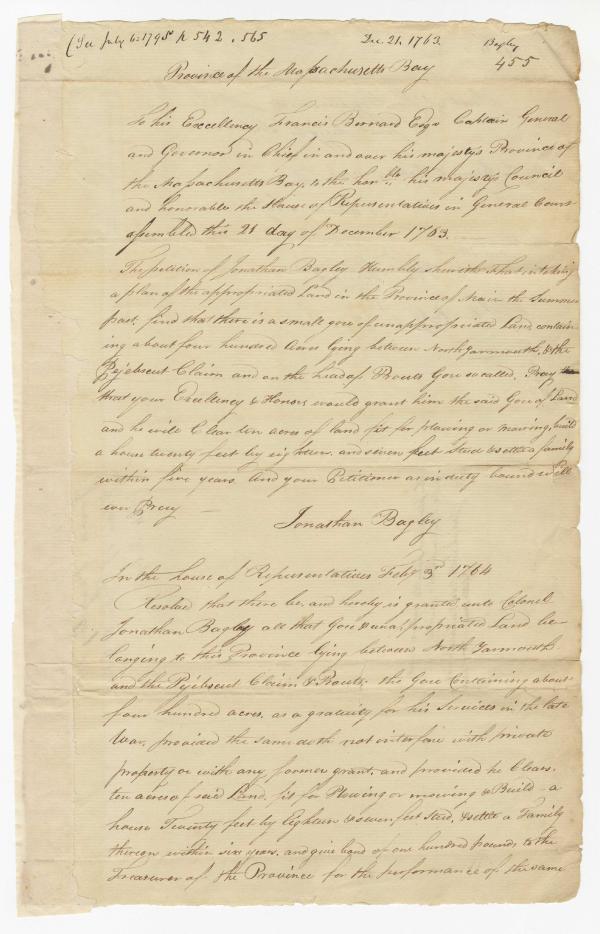 (See July 6: 1795 p 542. 565
Dec. 21. 1763.
Bagley
455
Province of the Massachusetts Bay
To his Excellency Francis Bernard Esqr Captain General
and Governor in Chief in and over his majestys Province of
the Massachusetts Bay, to the honble. his majestys Council
and honorable the House of Representatives in General Court
assembled this 21 day of December 1763.
The petition of Jonathan Bagley Humbly sheweth That in taking
a plan of the appropriated Land in the Province of Main the Summer
past, find that there is a small gore of unappropriated Land contain-
ing about four hundred Acres lying between North yarmouth, & the
Pejebscut Claim and on the head of Prouts Gore so called. Pray
that your Excellency & Honors would grant him the said Gore of Land
and he will Clear ten acres of land fit for plowing or mowing, build
a house twenty feet by eighteen, and seven feet Stud & settle a family
within five years And your Petitioner as in duty bound will
ever Pray —
Jonathan Bagley
In the house of Representatives Feby. 3d 1764
Resolved that there be, and hereby is granted unto Colonel
Jonathan Bagley all that Gore of unappropriated Land be-
longing to this Province lying between North Yarmouth
and the Pejebscut Claim & Prouts, the Gore Containing about
four hundred acres, as a gratuity for his Services in the late
War, provided the same doth not interfair with private
property or with any former grant, and provided he Clears
ten acres of said Land, fit for Plowing or mowing & Build a
house Twenty feet by Eighteen & seven feet Stud, & settle a Family
thereon within six years, and give bond of one hundred pounds to the
Treasurer of the Province for the performance of the same